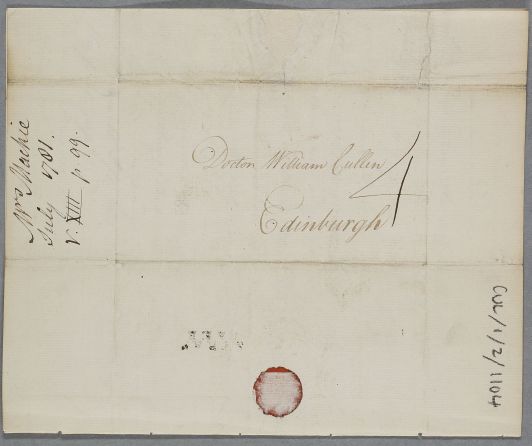 Mrs Mackie
July 1781.
V. XIII p 99.
Doctor William Cullen
4
Edinburgh
CUL/1/2/1104